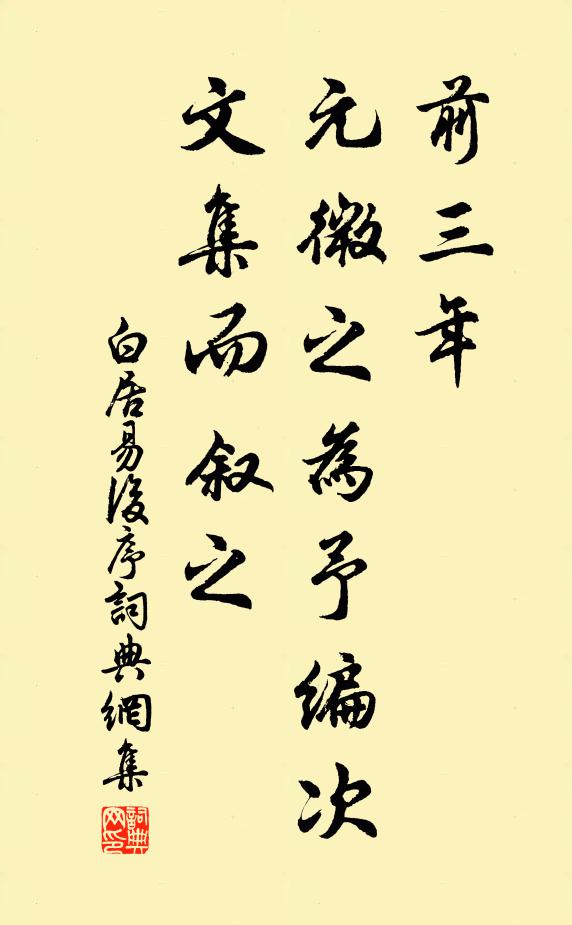 前三年
元微之為予編次
文集而叙之
白居易後序詞典網集
詞典网印